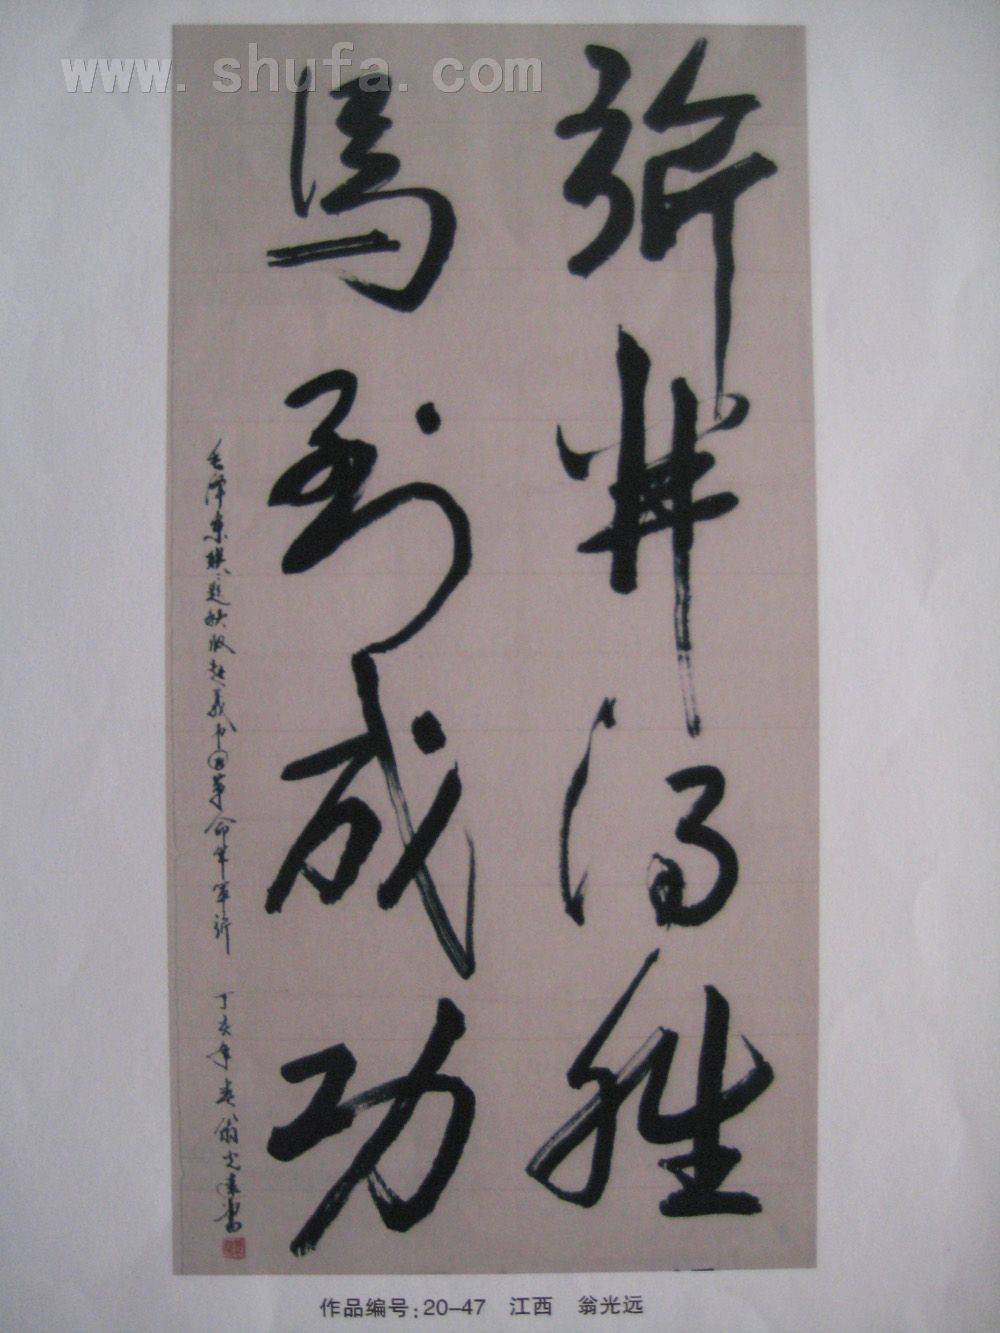 www.shufa.com
旂开得胜
马到成功
毛泽东题秋收起义中国革命军旂
丁亥年春翁光远书
作品编号:20-47 江西 翁光远